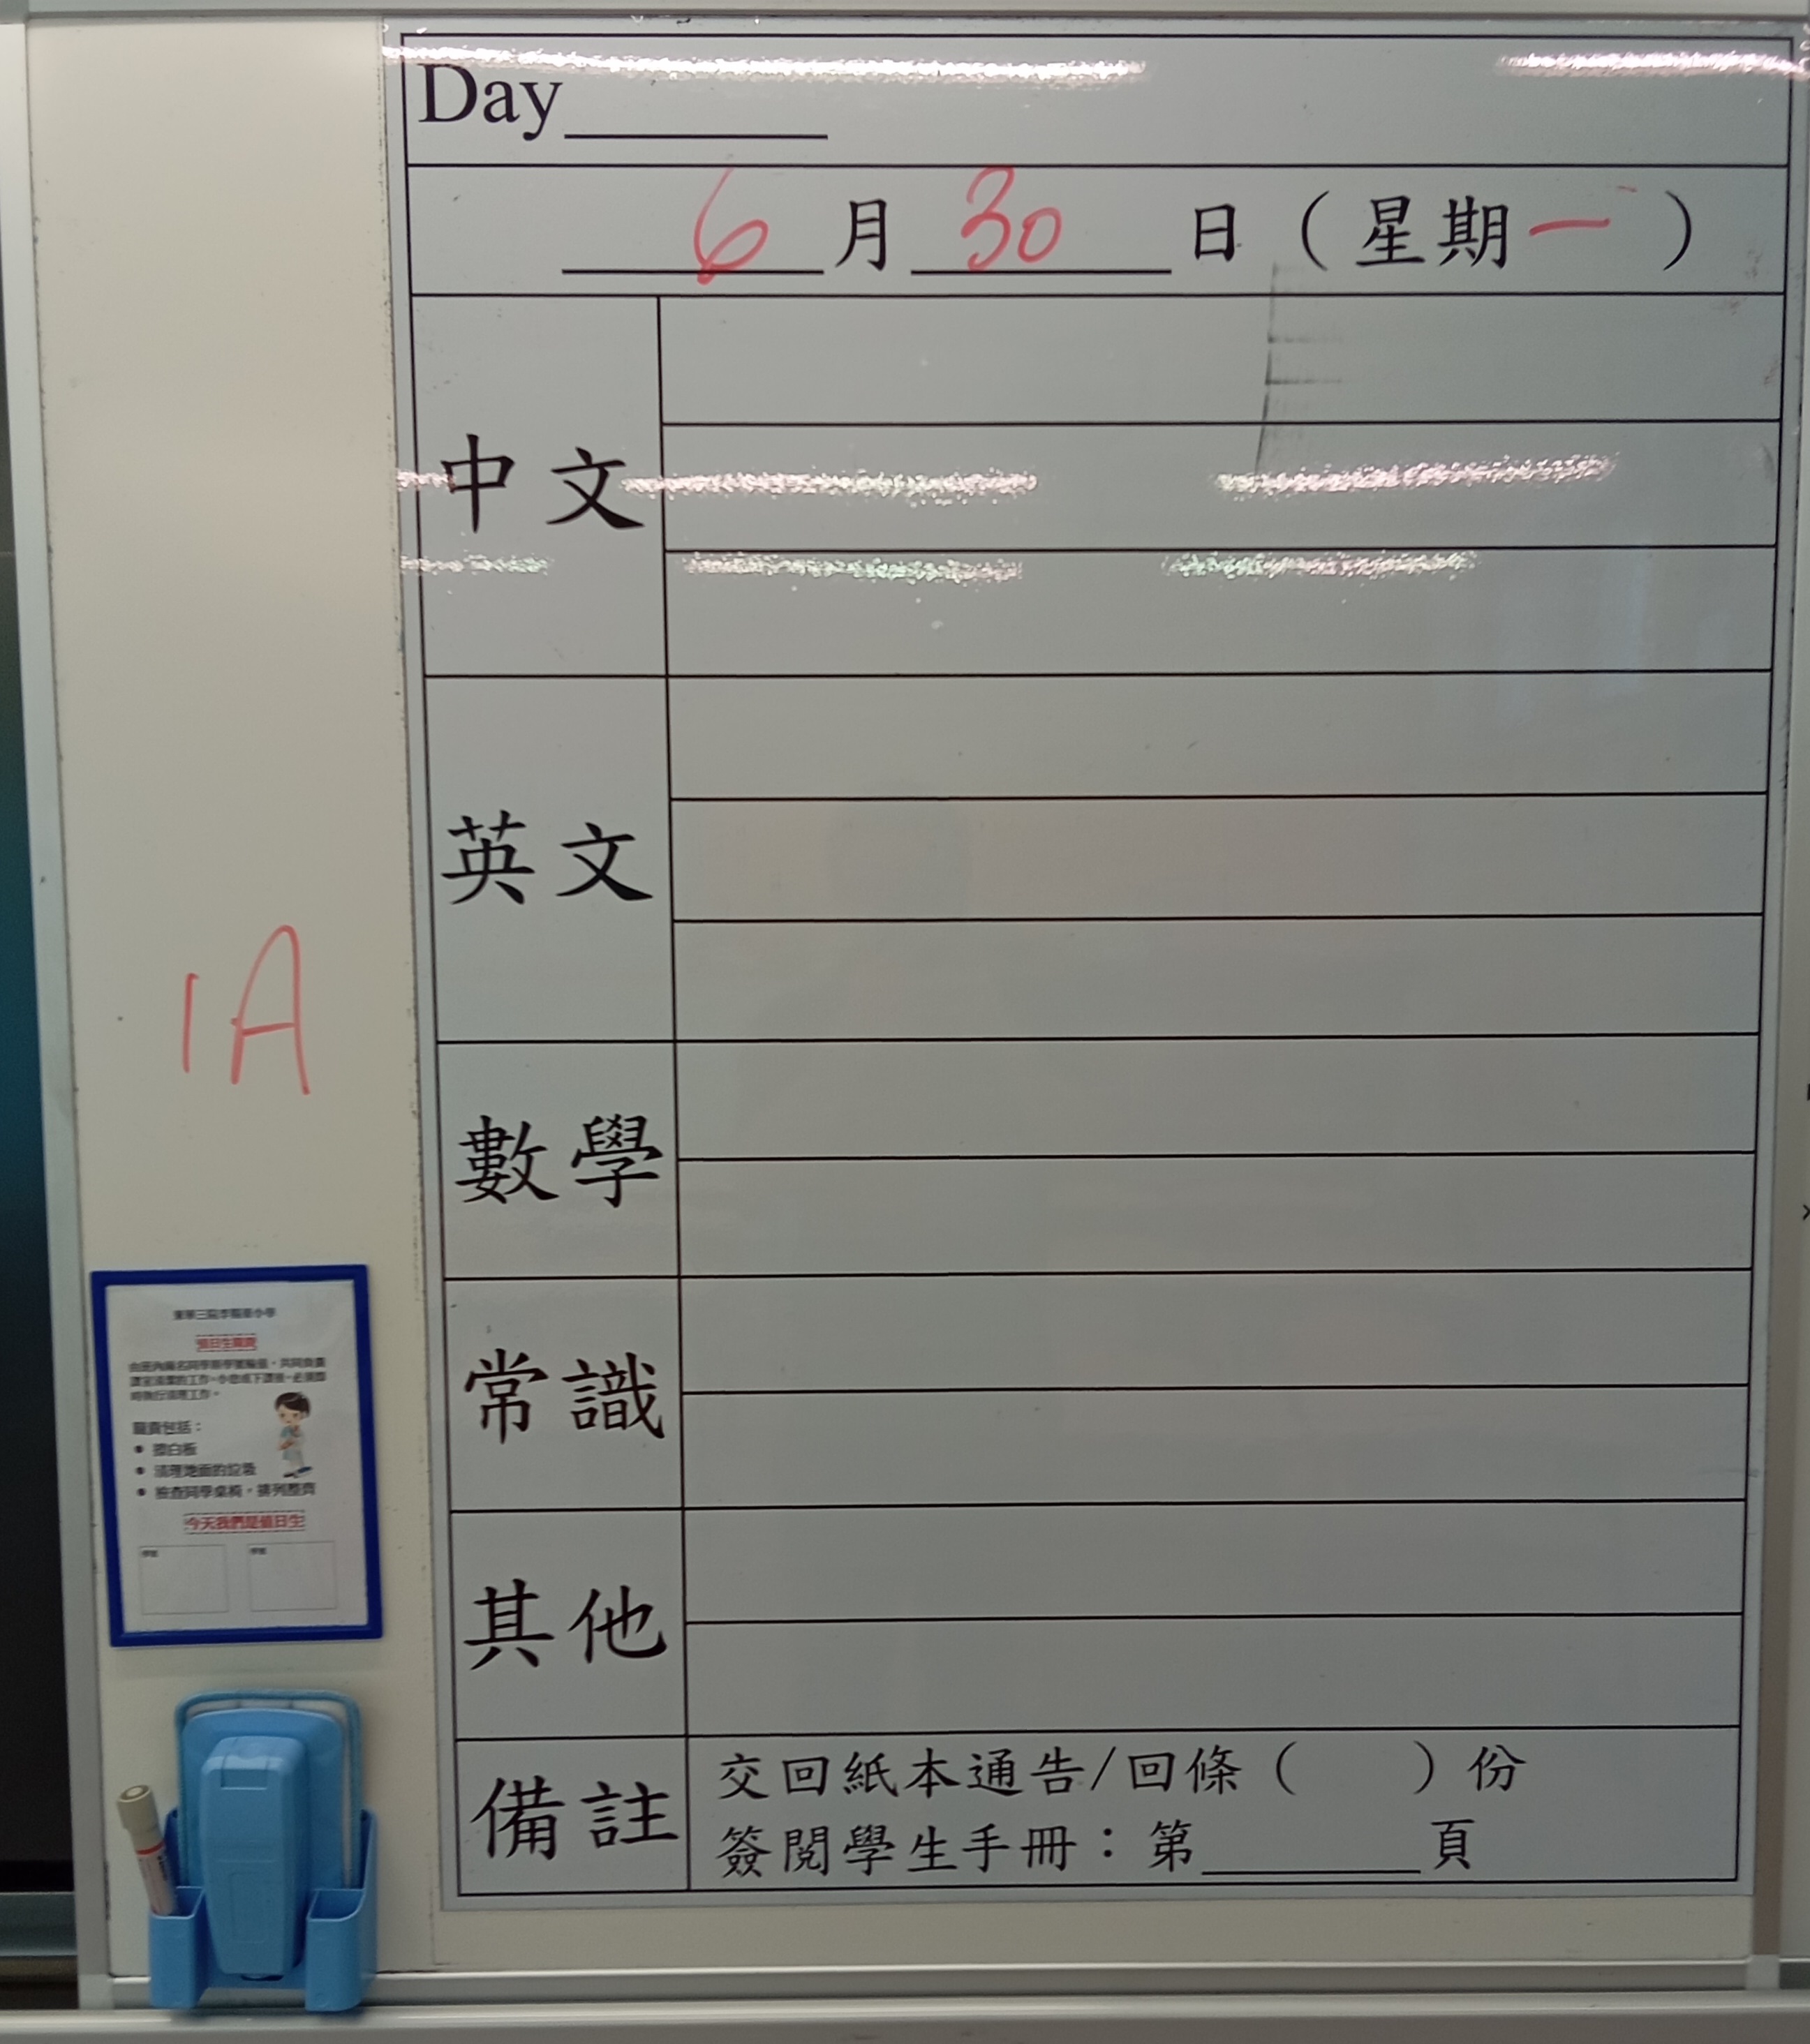 Day
6月30日（星期一）
中文
英文
1A
數學
常識
其他
備註
交回紙本通告/回條（　　）份
簽閱學生手冊：第　　頁
值日生職責
職責包括：
擦白板
清理地面的垃圾
檢查同學桌椅，排列整齊
今天我們是值日生